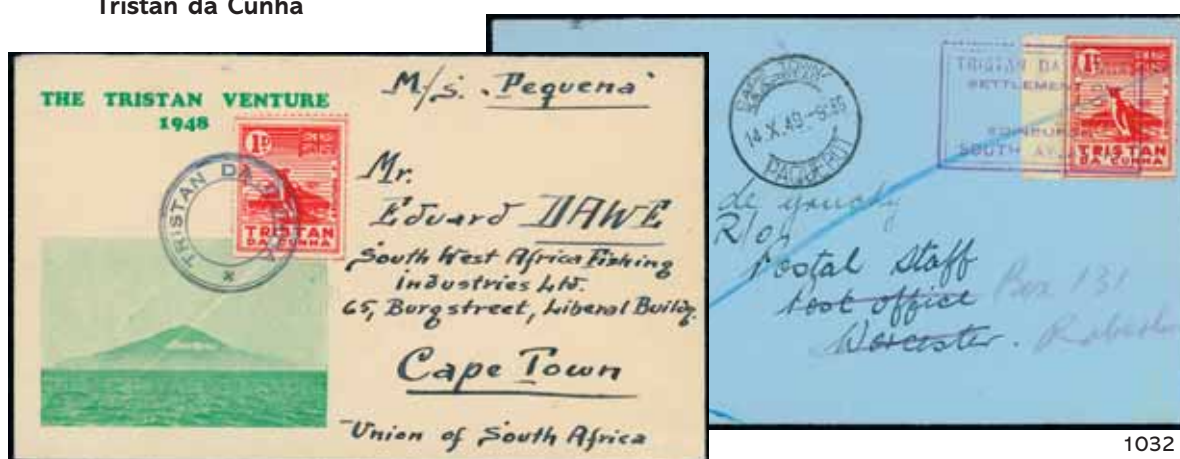 Tristan da Cunha
THE TRISTAN VENTURE
1948
M/s. "Pequena"
1D
TRISTAN
DA CUNHA
TRISTAN DA CUNHA
Mr.
Eduard DAWE
South West Africa Fishing
industries Ltd.
65, Burgstreet, Liberal Buildg.
Cape Town
Union of South Africa
14.X.49.-9.
PAQUEBOT
TRISTAN DA
SETTLEMENT
EDINBURGH
SOUTH
1D
TRISTAN
DA CUNHA
R/o
Postal Staff
Post Office
Box 131
Worcester.
1032